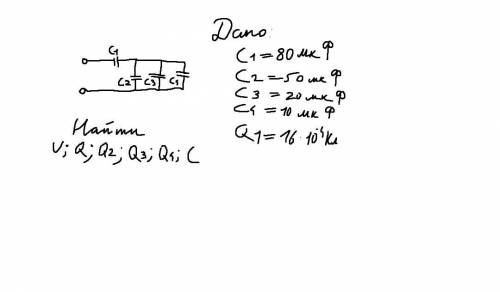 Дано:
C1 = 80 мкФ
C2 = 50 мкФ
C3 = 20 мкФ
C4 = 10 мкФ
Q1 = 16 · 10⁻⁴ Кл
C1
C2 C3 C4
Найти
U; Q; Q2; Q3; Q4; C